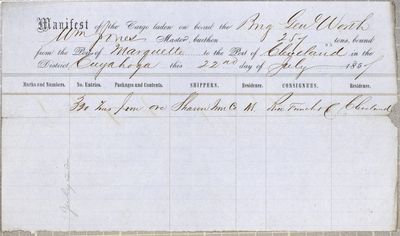 Manifest of the Cargo laden on board the Brig Genl Worth
Wm Jones Master, burthen 257 tons, bound
from the Port of Marquette to the Port of Cleveland in the
District Cuyahoga this 22nd day of July 1857
Marks and Numbers. No. Entries. Packages and Contents. SHIPPERS. Residence. CONSIGNEES. Residence.
320 Tons Iron ore Sharon Iron Co Cleveland